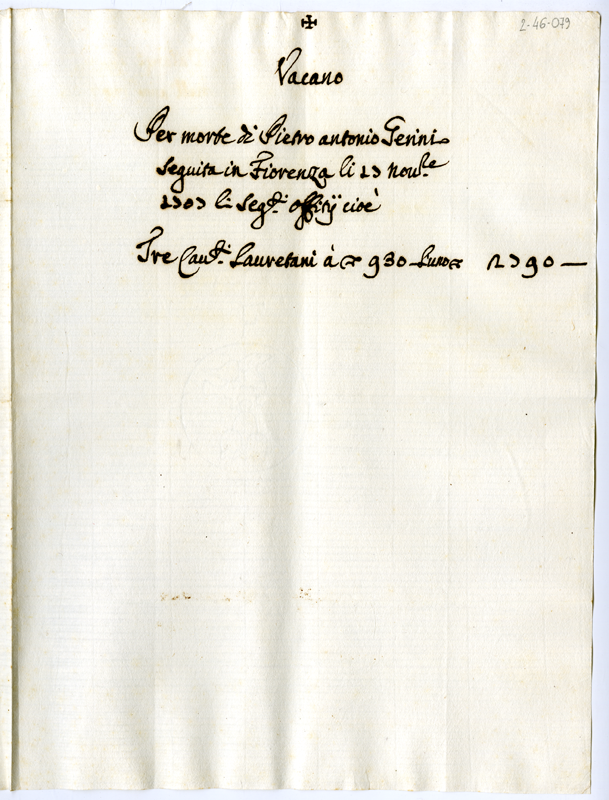 ✠
2-46-079
Vacano
Per morte di Pietro antonio Gerini
seguita in Fiorenza li 17 nou.re
1707 li seg.ti offitij cioè
Tre Cau.ti Lauretani à ∇ 930 l'uno ∇ 2790 —